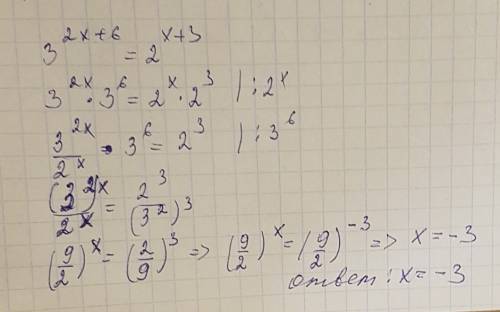 3^{2x+6} = 2^{x+3}
3^{2x} · 3^6 = 2^x · 2^3 | : 2^x
\frac{3^{2x}}{2^x} · 3^6 = 2^3 | : 3^6
\frac{(3^2)^x}{2^x} = \frac{2^3}{(3^2)^3}
(\frac{9}{2})^x = (\frac{2}{9})^3 => (\frac{9}{2})^x = (\frac{9}{2})^{-3} => x = -3
ответ: x = -3